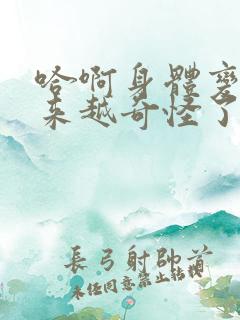 哈啊身體变
来越奇怪了
長弓射帥首
未经同意禁止转载